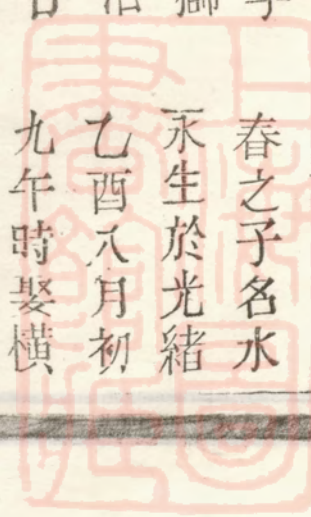 春之子名水
永生於光緒
乙酉八月初
九午時娶橫